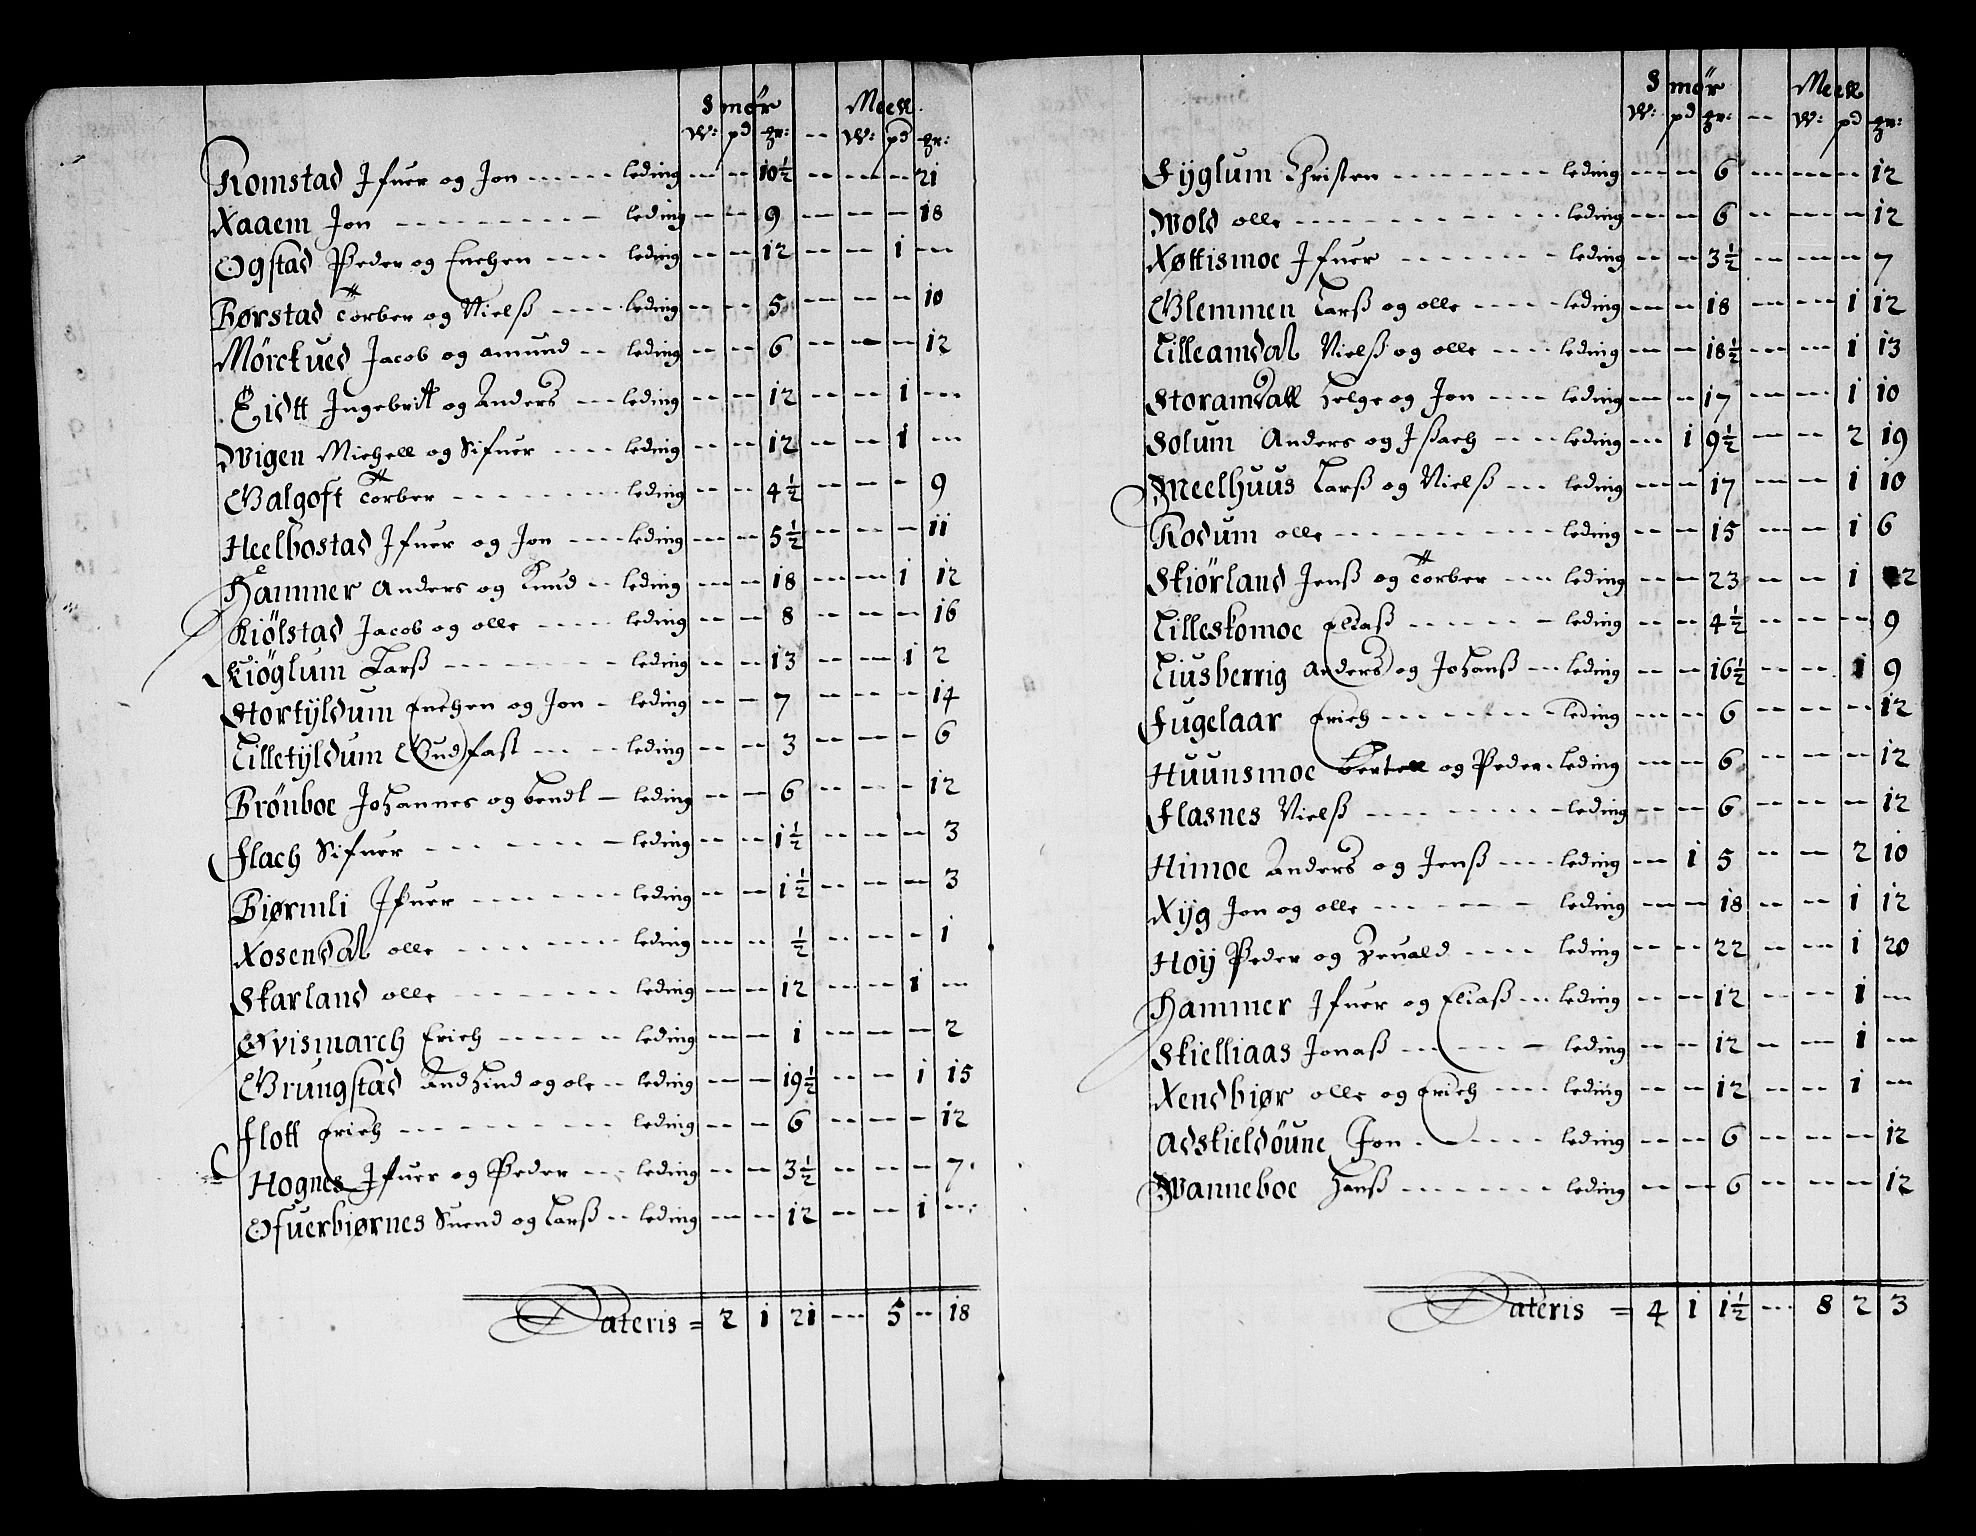 Smör Meell
W: pd gr: -- W: pd gr:
Romstad Jfuer og Jon ----- leding -- -- 10½ -- -- -- 21
Xaaem Jon --------- leding -- -- 9 -- -- -- 18
Ogstad Peder og Enchen ---- leding -- -- 12 -- -- 1 --
Börstad Torber og Nielß ---- leding -- -- 5 -- -- -- 10
Mörckued Jacob og amund -- leding -- -- 6 -- -- -- 12
Eidtt Jngebritt og Anders --- leding -- -- 12 -- -- 1 --
Wigen Michell og Sifuer ---- leding -- -- 12 -- -- 1 --
Galgoft Torber ------- leding -- -- 4½ -- -- -- 9
Heelbostad Jfuer og Jon ---- leding -- -- 5½ -- -- -- 11
Hammer Anders og Knud -- leding -- -- 18 -- -- 1 12
Kiölstad Jacob og olle ----- leding -- -- 8 -- -- -- 16
Kiöglum Larß -------- leding -- -- 13 -- -- 1 2
Stortyldum Enchen og Jon - leding -- -- 7 -- -- -- 14
Lilletyldum Gudfast ---- leding -- -- 3 -- -- -- 6
Brönboe Johannes og bendt - leding -- -- 6 -- -- -- 12
Flach Sifuer ------ leding -- -- 1½ -- -- -- 3
Biørmli Jfuer ------- leding -- -- 1½ -- -- -- 3
Xosendal olle ------- leding -- -- ½ -- -- -- 1
Skarland olle ------- leding -- -- 12 -- -- 1 --
Qvismarch Erich ----- leding -- -- 1 -- -- -- 2
Grungstad og ole -- leding -- -- 19½ -- -- 1 15
Flott Erich --------- leding -- -- 6 -- -- -- 12
Hognes Jfuer og Peder --- leding -- -- 3½ -- -- -- 7
Ofuerbiørnes Suend og Larß -- leding -- -- 12 -- -- 1 --
Lateris = 2 1 21 -- 5 -- 18
Smör Meell
W: pd gr: -- W: pd gr:
Fyglum Christen --------- leding -- -- 6 -- -- -- 12
Wold olle ------------ leding -- -- 6 -- -- -- 12
Xøttismoe Jfuer ------- leding -- -- 3½ -- -- -- 7
Glemmen Larß og olle ----- leding -- -- 18 -- -- 1 12
Lilleamdal Nielß og olle ---- leding -- -- 18½ -- -- 1 13
Storamdall Helge og Jon ---- leding -- -- 17 -- -- 1 10
Solum Anders og Jßach ---- leding -- 1 9½ -- -- 2 19
Meelhuus Larß og Nielß --- leding -- -- 17 -- -- 1 10
Rodum olle --------- leding -- -- 15 -- -- 1 6
Skiörland Jenß og Torber --- leding -- -- 23 -- -- 1 22
Lilleskomoe Eliaß ------ leding -- -- 4½ -- -- -- 9
Liusberrig Anders og Johanß -- leding -- -- 16½ -- -- 1 9
Fugelaar Erich ------- leding -- -- 6 -- -- -- 12
Huunsmoe Bertell og Peder - leding -- -- 6 -- -- -- 12
Flasnes Nielß --------- leding -- -- 6 -- -- -- 12
Himoe Anders og Jenß ---- leding -- 1 5 -- -- 2 10
Xyg Jon og olle ------ leding -- -- 18 -- -- 1 12
Høy Peder og ---- leding -- -- 22 -- -- 1 20
Hammer Jfuer og Eliaß -- leding -- -- 12 -- -- 1 --
Skielliaas Jonaß ----- leding -- -- 12 -- -- 1 --
Xendbiør olle og Erich ---- leding -- -- 12 -- -- 1 --
Adskieldöune Jon ------ leding -- -- 6 -- -- -- 12
Wanneboe Hanß ------- leding -- -- 6 -- -- -- 12
Lateris = 4 1 1½ --- 8 2 3